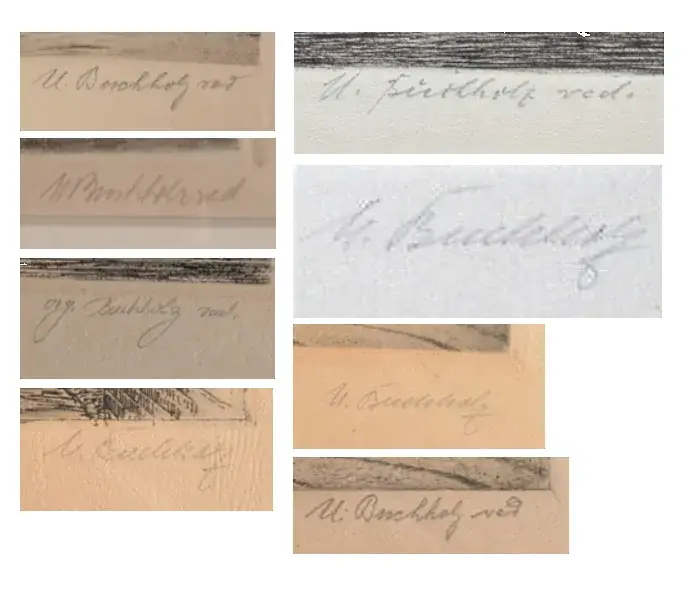 U. Buchholz rad
U. Buchholz rad
org. Buchholz rad.
U. Buchholz
U. Buchholz rad.
U. Buchholz
U. Buchholz
U. Buchholz rad